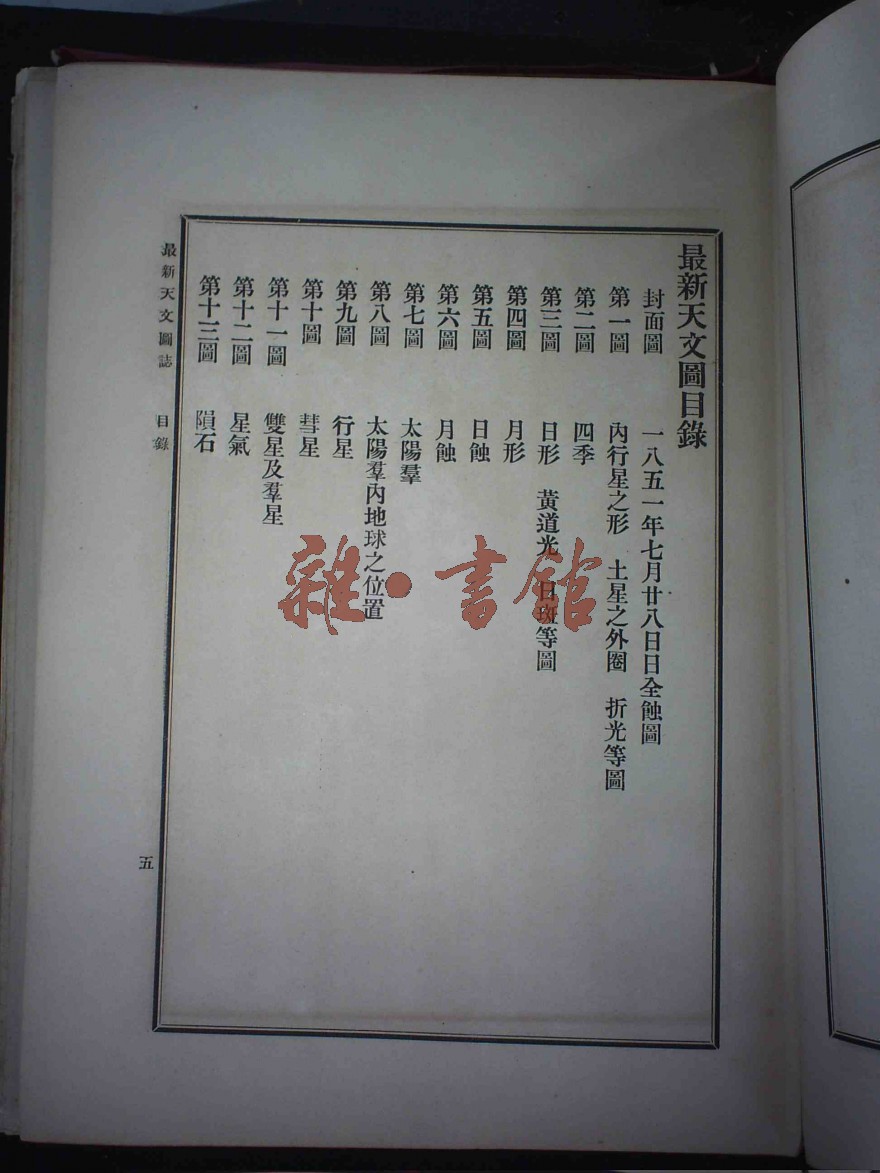 最新天文圖目錄
封面圖 一八五一年七月廿八日日全蝕圖
第一圖 內行星之形 土星之外圈 折光等圖
第二圖 四季
第三圖 日形 黃道光 日斑等圖
第四圖 月形
第五圖 日蝕
第六圖 月蝕
第七圖 太陽羣
第八圖 太陽羣內地球之位置
第九圖 行星
第十圖 彗星
第十一圖 雙星及羣星
第十二圖 星氣
第十三圖 隕石
最新天文圖誌 目錄 五
雜·書館